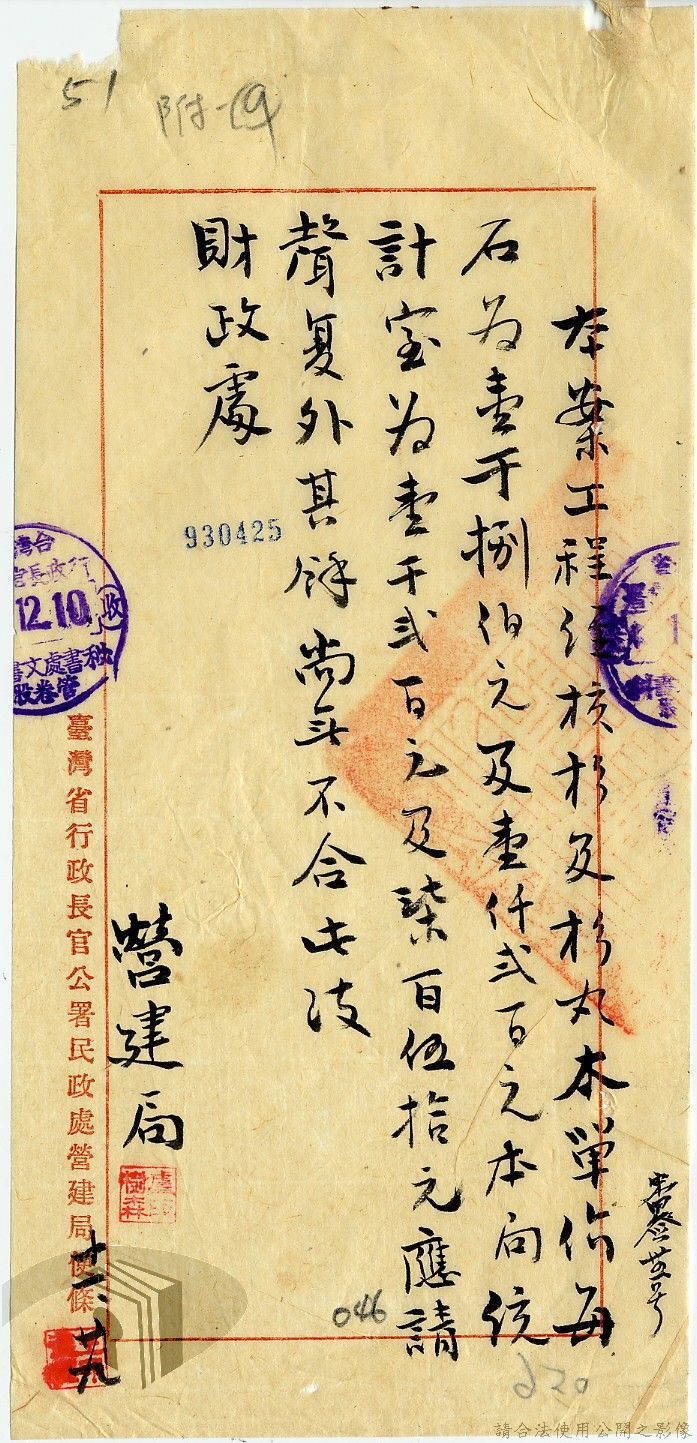 51
附-19
本案工程經核杉及杉丸木單價每
石為壹千捌伯元及壹仟弍百元本局統
計室為壹千弍百元及柒百伍拾元應請
聲复外其餘尚無不合此致
財政處
930425
營建局
臺灣省行政長官公署民政處營建局便條
十一、廿九
12.10
收
046
220
請合法使用公開之影像